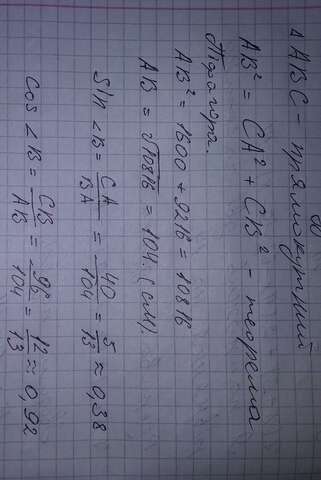 △ABC - прямокутний
AB² = CA² + CB² - теорема
Піфагора.
AB² = 1600 + 9216 = 10816
AB = √10816 = 104 (см).
Sin ∠B = CA/BA = 40/104 = 5/13 ≈ 0,38
Cos ∠B = CB/AB = 96/104 = 12/13 ≈ 0,92